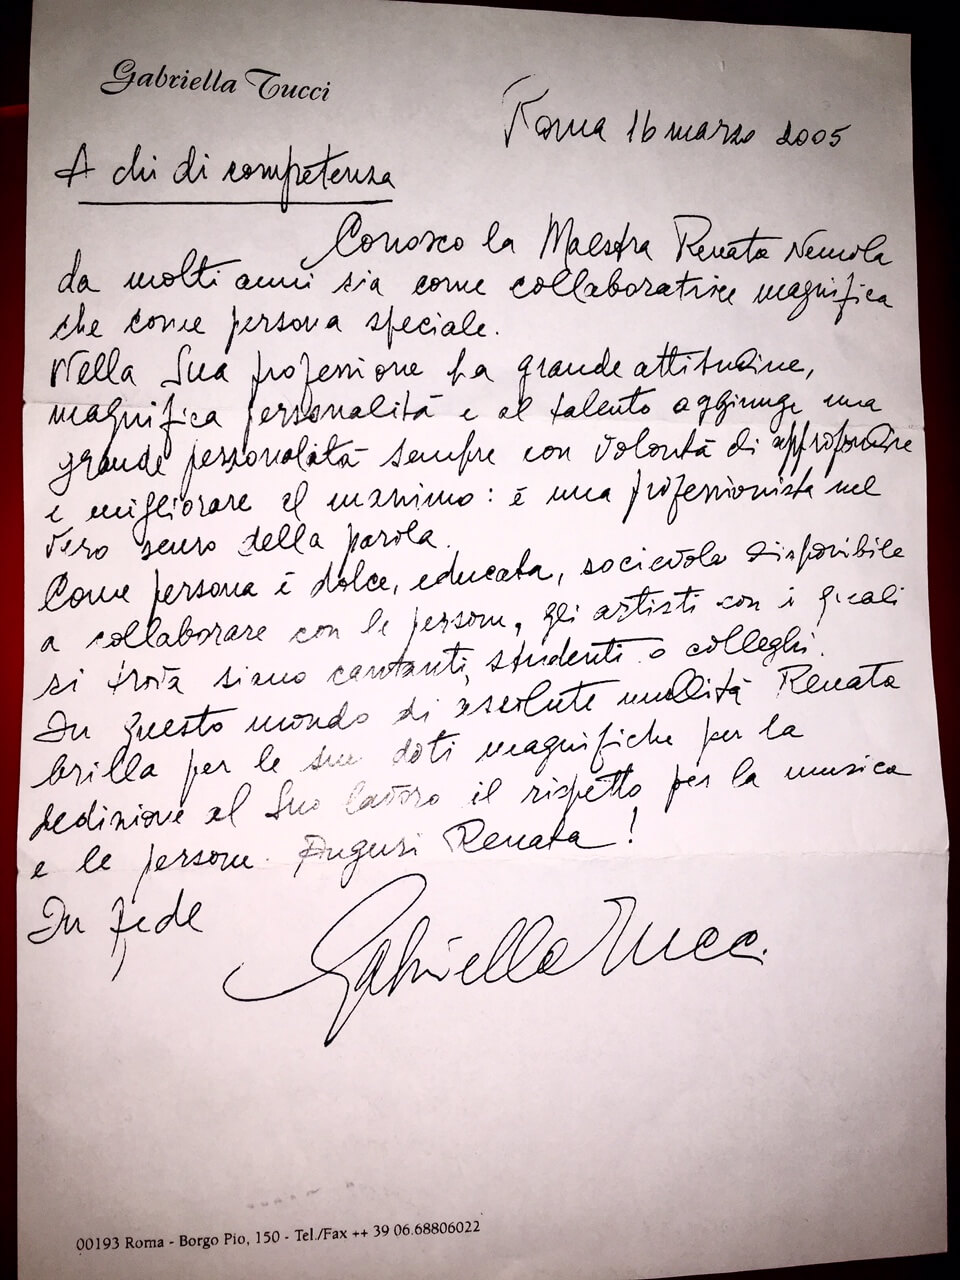 Gabriella Tucci
Roma 16 marzo 2005
A chi di competenza
Conosco la Maestra Renata Nemola
da molti anni sia come collaboratrice magnifica
che come persona speciale.
Nella Sua professione ha grande attitudine,
magnifica personalità e al talento aggiunge una
grande personalità sempre con volontà di approfondire
e migliorare al massimo: è una professionista nel
vero senso della parola.
Come persona è dolce, educata, socievole disponibile
a collaborare con le persone, gli artisti con i quali
si trova siano cantanti, studenti o colleghi.
In questo mondo di assolute nullità Renata
brilla per le sue doti magnifiche per la
dedizione al Suo lavoro il rispetto per la musica
e le persone. Auguri Renata!
In fede
Gabriella Tucci
00193 Roma - Borgo Pio, 150 - Tel./Fax ++ 39 06.68806022